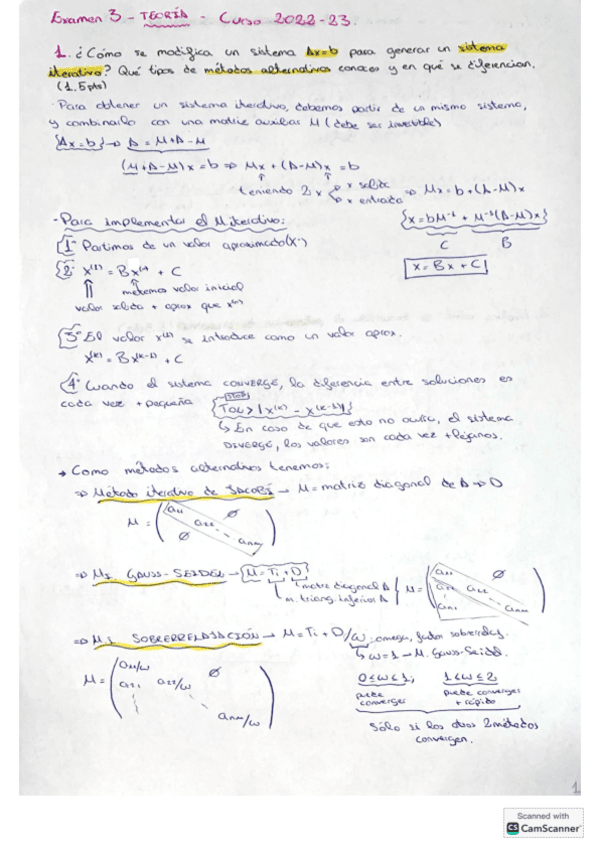 Examen 3 - TEORÍA - Curso 2022-23.
1. ¿Cómo se modifica un sistema Ax=b para generar un sistema
iterativo? Qué tipos de métodos alternativos conoces y en qué se diferencian.
(1.5pts)
· Para obtener un sistema iterativo, debemos partir de un mismo sistema,
y combinarlo con una matriz auxiliar M (debe ser invertible)
{Ax=b} → A = M+A-M
(M+A-M)x = b ⇒ Mx + (A-M)x = b
teniendo 2 x
x salida
x entrada
⇒ Mx = b + (A-M)x
{x = bM⁻¹ + M⁻¹(A-M)x}
C B
x = Bx + C
- Para implementar el M. iterativo:
1º Partimos de un valor aproximado
2º
= Bx + C
metemos valor inicial
valor salida + aprox que
3º El valor se introduce como un valor aprox.
x⁽ᵏ⁾ = Bx⁽ᵏ⁻¹⁾ + C
4º Cuando el sistema CONVERGE, la diferencia entre soluciones es
cada vez + pequeña
STOP
TOL > |x⁽ᵏ⁾ - x⁽ᵏ⁻¹⁾|
↳ En caso de que esto no ocurra, el sistema
DIVERGE, los valores son cada vez + lejanos.
→ Como métodos alternativos tenemos:
⇒ Método iterativo de JACOBI - M = matriz diagonal de A → D
M = ( a₁₁ a₂₂ aₙₙ ∅ ∅ )
⇒ M. I. GAUSS-SEIDEL - {M = Ti + D}
matriz diagonal A
m. triang. inferior A
M = ( a₁₁ ∅ a₂₂ aₙ₁ aₙₙ )
⇒ M. I. SOBRERRELAJACIÓN - M = Ti + D/ω
: omega, factor
↳ ω=1 - M. Gauss-Seidel
M = ( a₁₁/ω ∅ a₂₁ a₂₂/ω aₙₙ/ω )
0≤ω≤1; 1<ω≤2
puede converger
puede converger + rápido
Sólo si los otros 2 métodos
convergen.
1
Scanned with
CS CamScanner